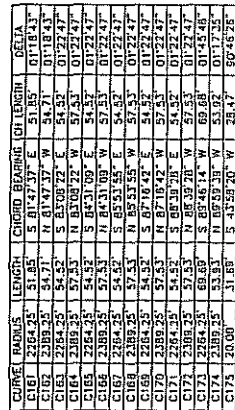 CURVE RADIUS LENGTH CHORD BEARING CH LENGTH DELTA
C161 2264.25' 51.85' S 81°47'37" E 51.85' 01°18'43"
C162 2389.25' 54.71' N 81°47'37" W 54.71' 01°18'43"
C163 2264.25' 54.52' S 83°08'22" E 54.52' 01°22'47"
C164 2389.25' 57.53' N 83°08'22" W 57.53' 01°22'47"
C165 2264.25' 54.52' S 84°31'09" E 54.52' 01°22'47"
C166 2389.25' 57.53' N 84°31'09" W 57.53' 01°22'47"
C167 2264.25' 54.52' S 85°53'55" E 54.52' 01°22'47"
C168 2389.25' 57.53' N 85°53'55" W 57.53' 01°22'47"
C169 2264.25' 54.52' S 87°16'42" E 54.52' 01°22'47"
C170 2389.25' 57.53' N 87°16'42" W 57.53' 01°22'47"
C171 2264.25' 54.52' S 88°39'28" E 54.52' 01°22'47"
C172 2389.25' 57.53' N 88°39'28" W 57.53' 01°22'47"
C173 2264.25' 69.69' S 89°46'14" W 69.68' 01°45'48"
C174 2389.25' 53.93' N 89°59'39" W 53.92' 01°17'35"
C175 20.00' 31.69' S 45°58'20" W 28.47' 90°46'25"